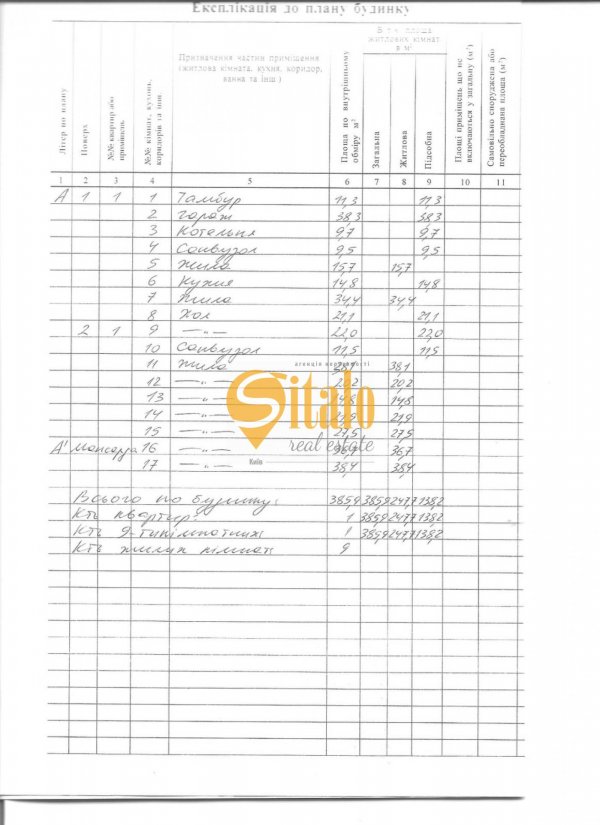 Експлікація до плану будинку
Літер по плану
Поверх
№№ квартир або приміщень
№№ кімнат, кухонь, коридорів та інш
Призначення частин приміщення
(житлова кімната, кухня, коридор,
ванна та інш.)
Площа по внутрішньому обміру м²
В т.ч. площа
житлових кімнат
в м²
Загальна
Житлова
Підсобна
Площі приміщень що не включаються у загальну (м²)
Самовільно споруджена або переобладнана площа (м²)
1 2 3 4 5 6 7 8 9 10 11
А 1 1 1 Тамбур 11,3 11,3
2 Гараж 38,3 38,3
3 Котельня 9,7 9,7
4 Санвузол 9,5 9,5
5 Жила 15,7 15,7
6 Кухня 14,8 14,8
7 Жила 34,4 34,4
8 Хол 21,1 21,1
2 1 9 —„— 22,0 22,0
10 Санвузол 11,5 11,5
11 Жила 38,1 38,1
12 —„— 20,2 20,2
13 —„— 14,8 14,8
14 —„— 21,9 21,9
15 —„— 27,5 27,5
А' Мансарда 16 —„— 36,7 36,7
17 —„— 38,4 38,4
Всього по будинку: 385,9 385,9 247,7 138,2
Кть квартир: 1 385,9 247,7 138,2
Кть 9-тикімнатних: 1 385,9 247,7 138,2
Кть жилих кімнат: 9
агенція нерухомості
Sitalo
real estate
Київ